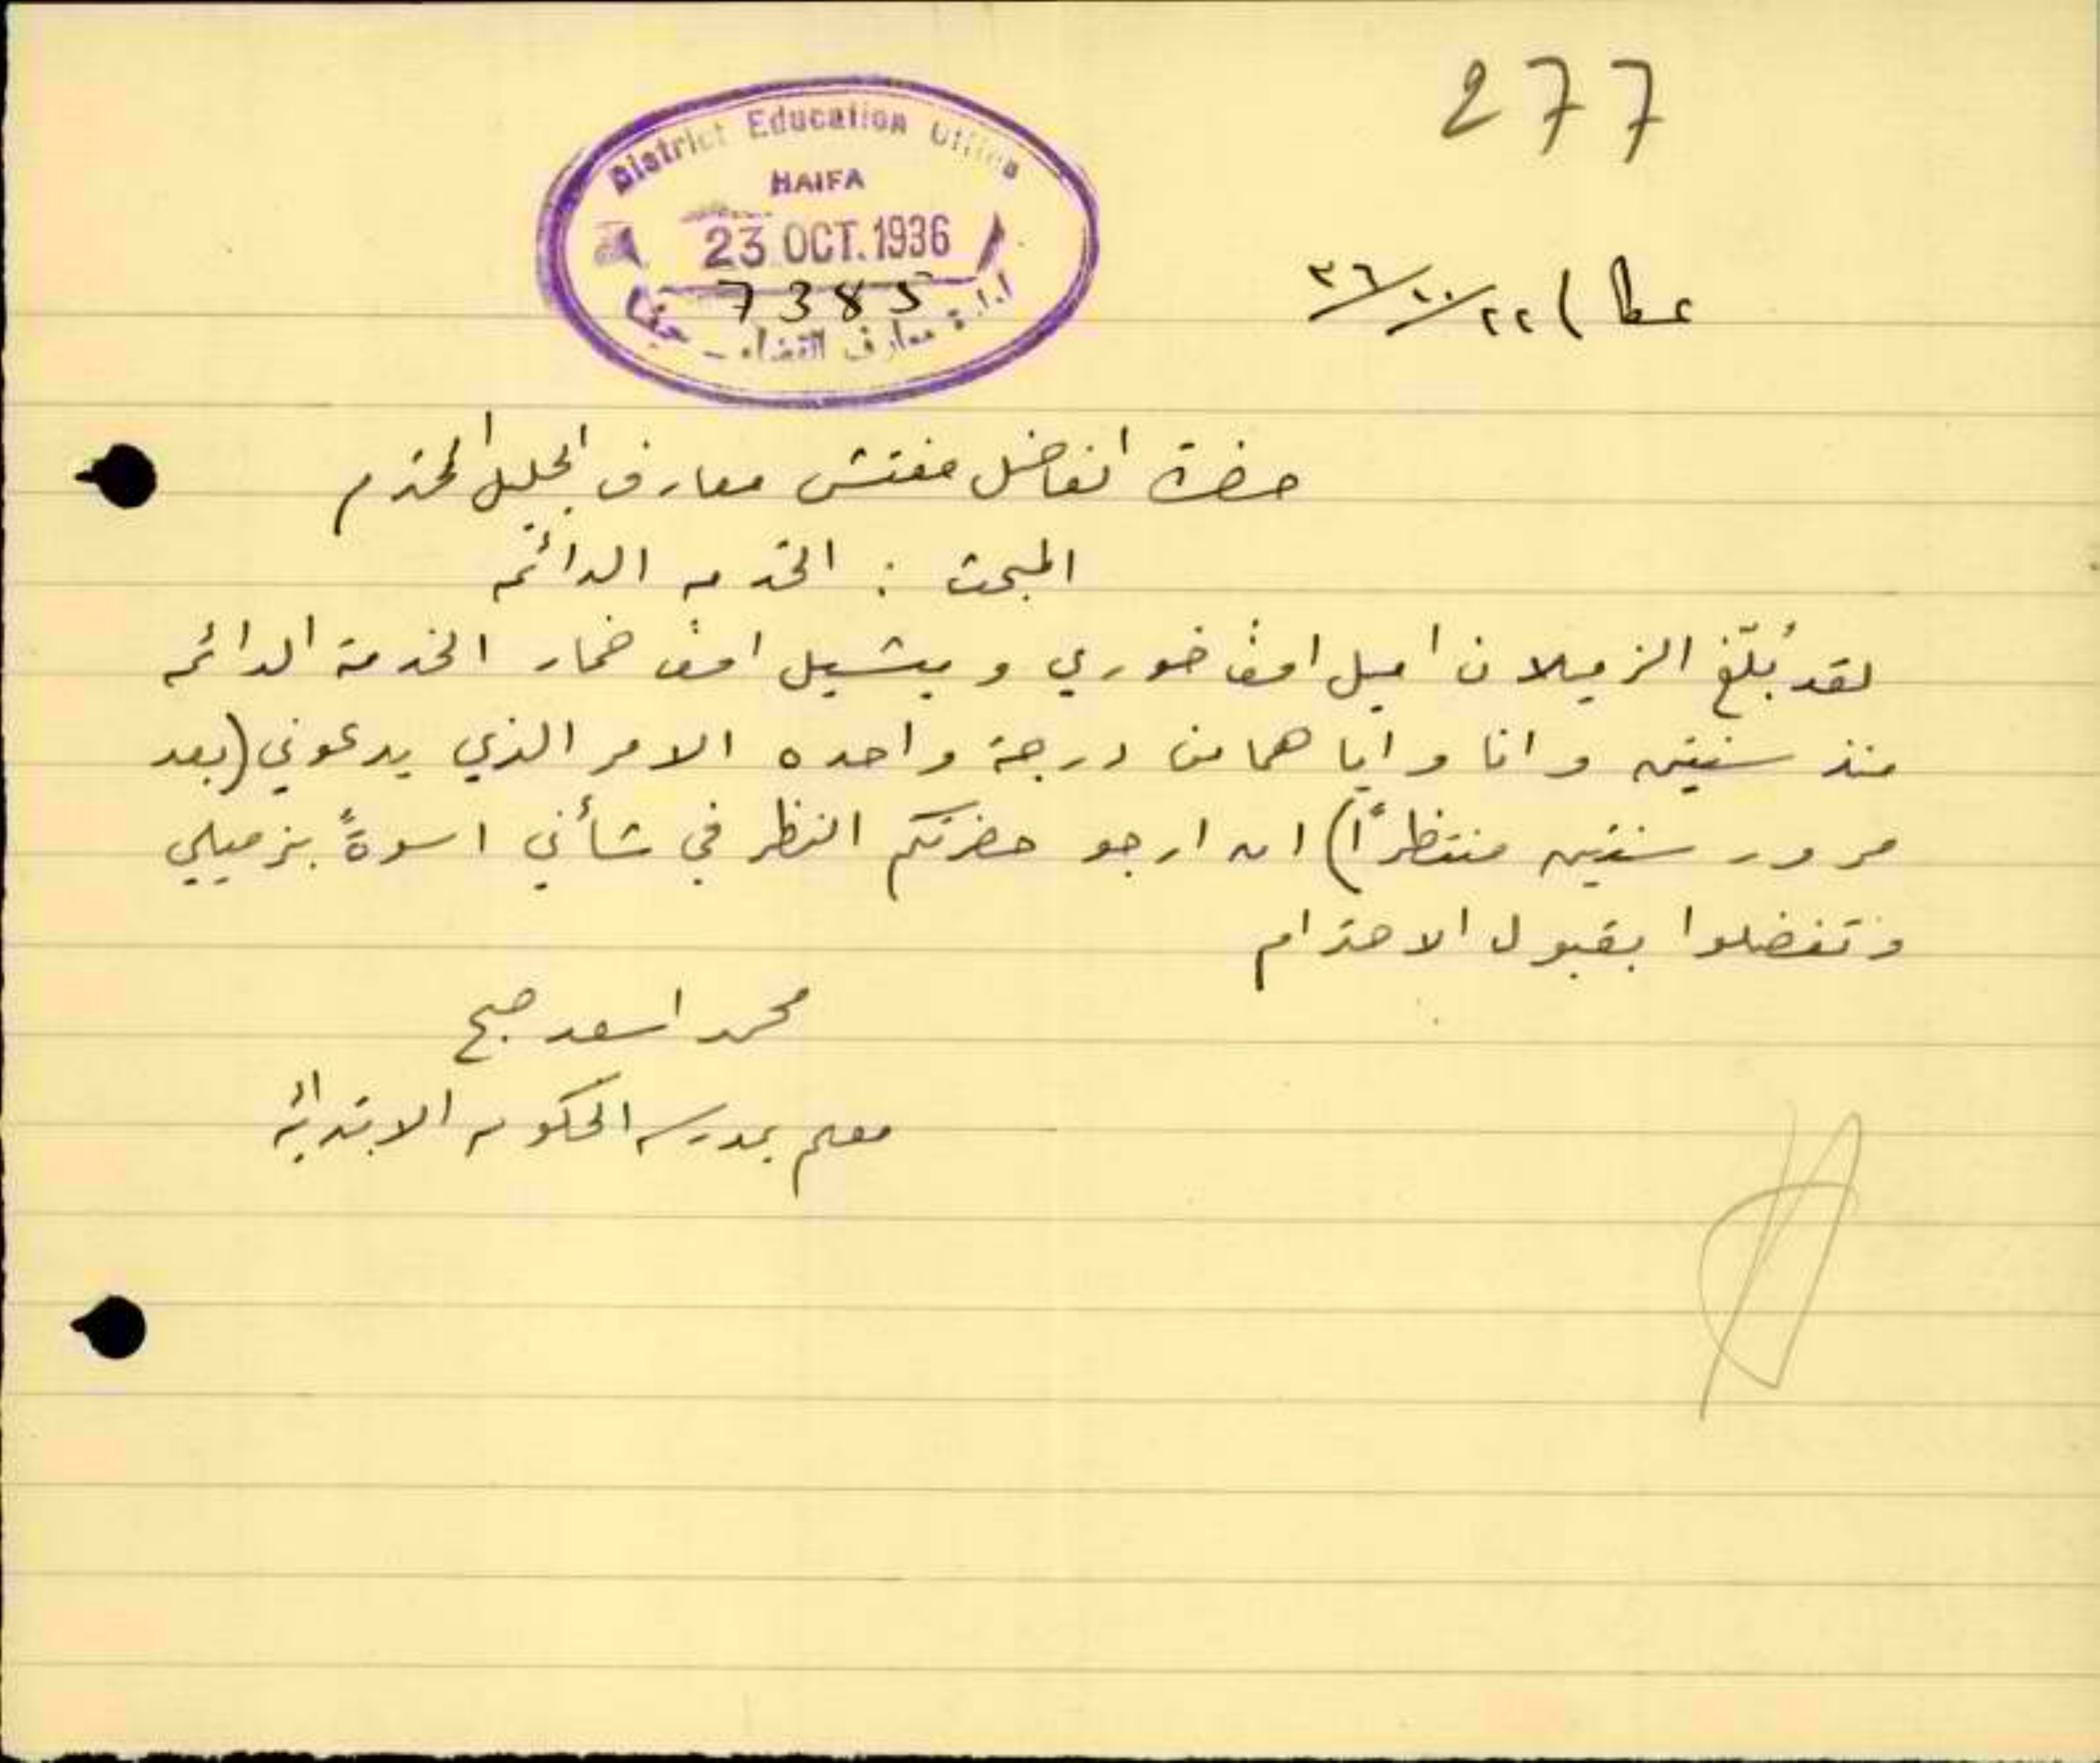 277
District Education Office
HAIFA
23 OCT. 1936
7385
ادارة معارف القضاء - حيفا
عكا ) ٢٢/١٠/٣٦
حضرة الفاضل مفتش معارف الجليل المحترم
المبحث : الخدمه الدائمه
لقد بُلّغ الزميلان اميل افندي خوري و ميشيل افندي خمار الخدمة الدائمه
منذ سنتين وانا واياهما من درجة واحده الامر الذي يدعوني (بعد
مرور سنتين منتظراً) ان ارجو حضرتكم النظر في شأني اسوةً بزميلي
وتفضلوا بقبول الاحترام
محمد اسعد صبح
معلم بمدرسه الحكومه الابتدائيه